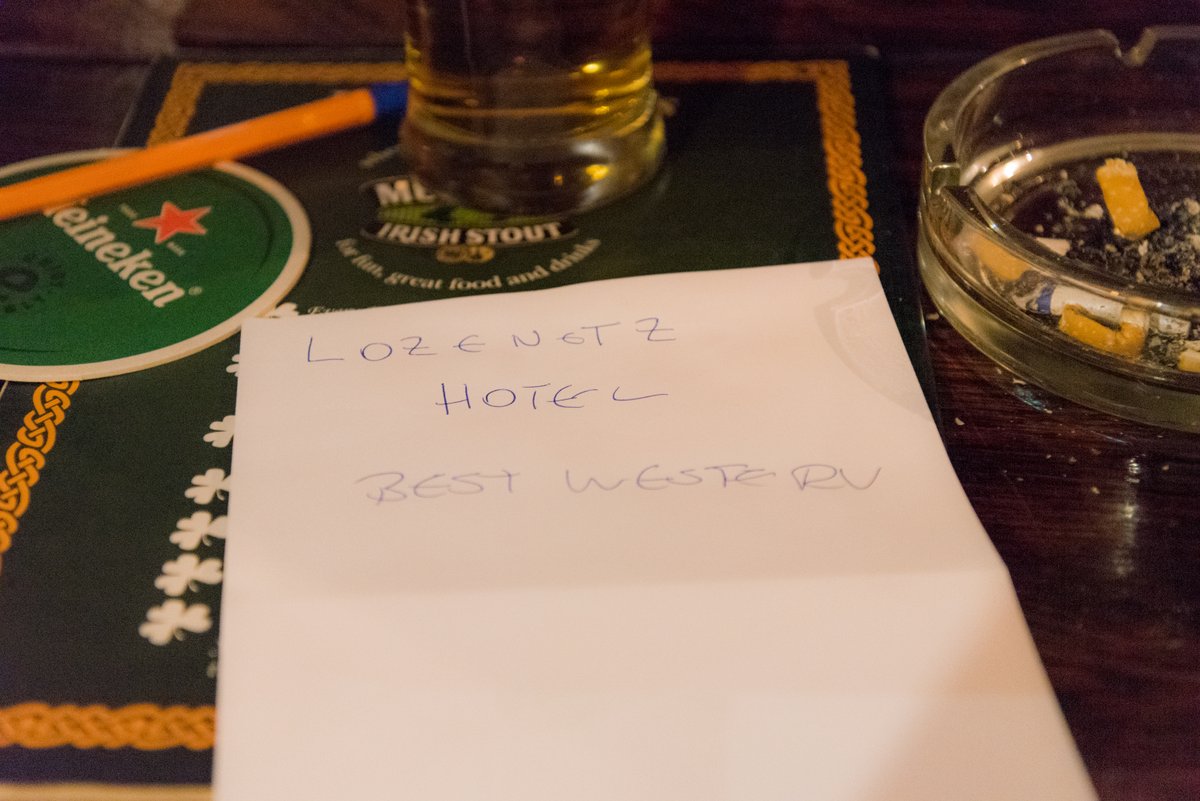 Heineken ®
IRISH STOUT
for fun, great food and drinks
LOZENETZ
HOTEL
BEST WESTERN